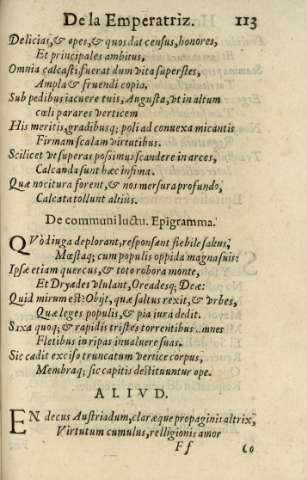 De la Emperatriz. 113
Delicias, & opes, & quos dat census, honores,
Et principales ambitus,
Omnia calcasti, fuerat dum vita superstes,
Ampla & fruendi copia,
Sub pedibus iacuere tuis, Augusta, vt in altum
cæli parares verticem
His meritis, gradibusq; poli ad conuexa micantis
Firmam scalam virtutibus.
Scilicet vt superas possimus scandere in arces,
Calcanda sunt hæc infima.
Quæ nocitura forent, & nos mersura profundo,
Calcata tollunt altiùs.
De communi luctu. Epigramma.
QVòd iuga deplorant, responsant flebile saltus,
Mæstaq; cum populis oppida magna suis:
Ipsæ etiam quercus, & toto robora monte,
Et Dryades vlulant, Oreadesq; Deæ:
Quid mirum est? Obijt, quæ saltus rexit, & vrbes,
Quæ leges populis, & pia iura dedit.
Saxa quoq; & rapidis tristes torrentibus amnes
Fletibus in ripas inualuere suas.
Sic cadit exciso truncatum vertice corpus,
Membraq; sic capitis destituuntur ope.
ALIVD.
EN decus Austriadum, claræque propaginis altrix,
Virtutum cumulus, relligionis amor
Ff co